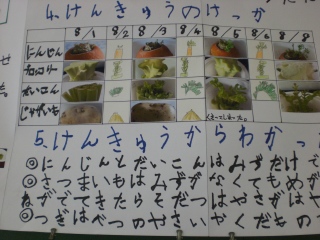 4.けんきゅうのけっか
8/1 8/2 8/3 8/4 8/5 8/6 8/7 8/8
にんじん
だいこん
じゃがいも
くさってしまった。
5.けんきゅうからわかっ
◎にんじんとだいこんはみずだけで
◎さつまいもはみずがなくてもめが
ねがでてきたらそだつはやさがはや
◎つぎはべつのやさいやくだもの